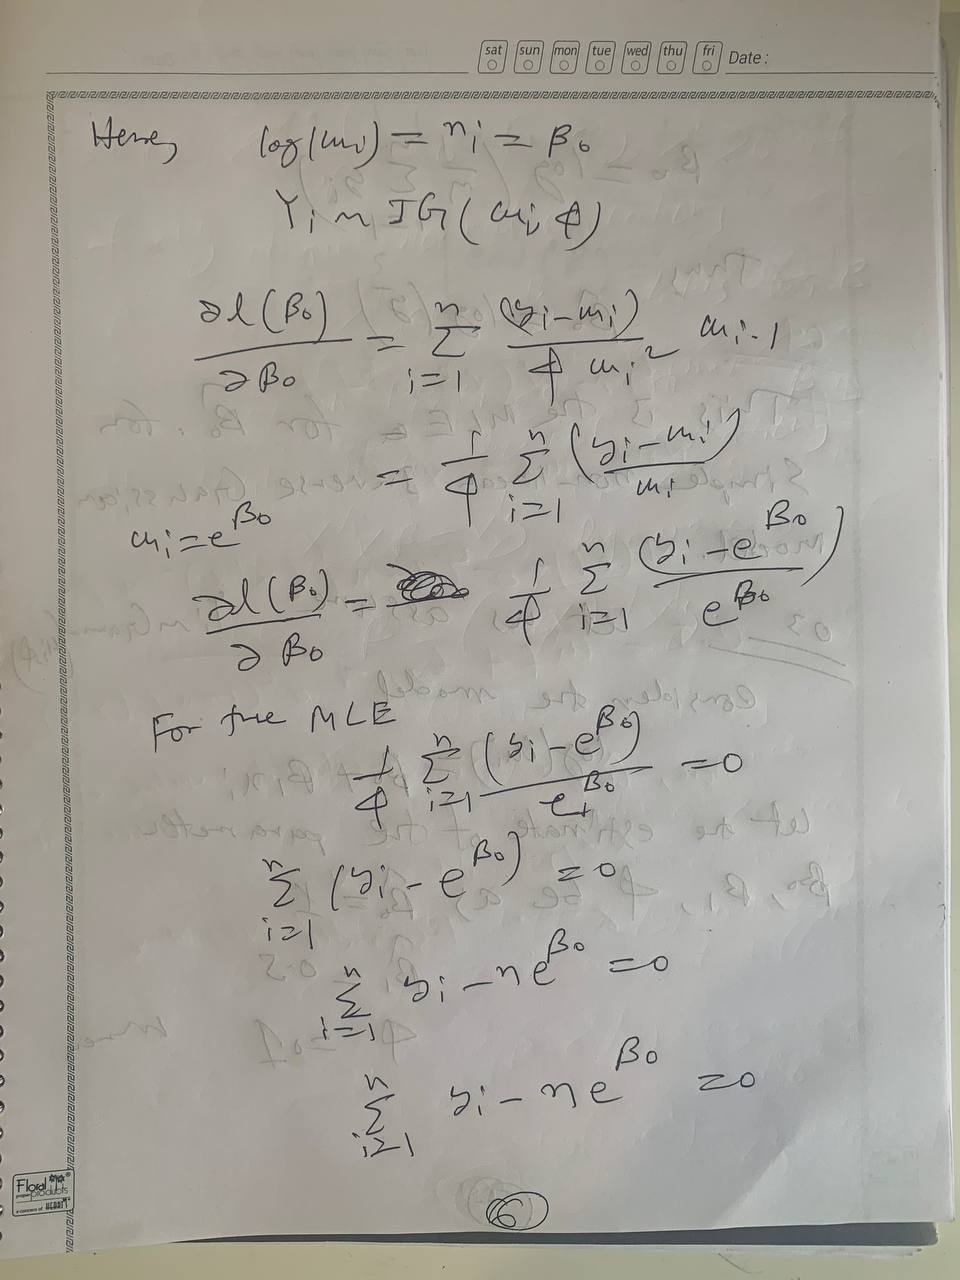 sat sun mon tue wed thu fri Date :
Here, log(μi) = ηi = β0
Yi ~ IG(μi, φ)
∂l(β0)/∂β0 = Σ_{i=1}^{n} (yi - μi)/(φ μi²) μi · 1
= 1/φ Σ_{i=1}^{n} (yi - μi)/μi
μi = e^β0
∂l(β0)/∂β0 = 1/φ Σ_{i=1}^{n} (yi - e^β0)/e^β0
For the MLE
1/φ Σ_{i=1}^{n} (yi - e^β0)/e^β0 = 0
Σ_{i=1}^{n} (yi - e^β0) = 0
Σ_{i=1}^{n} yi - ne^β0 = 0
Σ_{i=1}^{n} yi - ne^β0 = 0
6
Floral
paper products
a concern of HERBIT